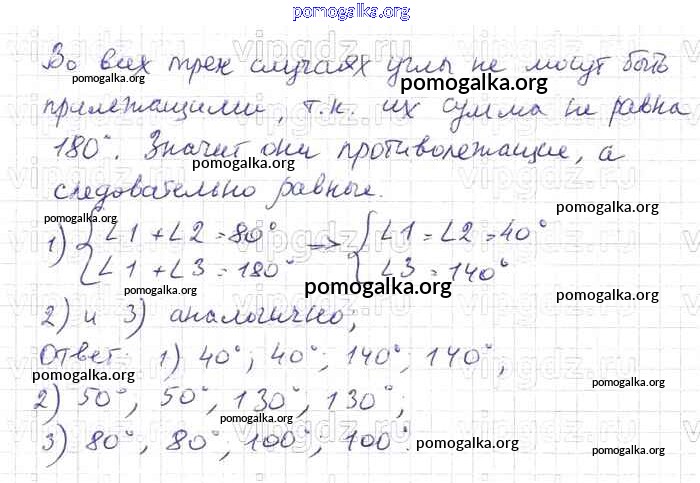 pomogalka.org
Во всех трех случаях углы не могут быть
pomogalka.org
pomogalka.org
прилежащими, т.к. их сумма не равна
pomogalka.org
180°. Значит они противолежащие, а
pomogalka.org
следовательно равные.
pomogalka.org
pomogalka.org
1) { ∠1 + ∠2 = 80° => { ∠1 = ∠2 = 40°
∠1 + ∠3 = 180° ∠3 = 140°
pomogalka.org
pomogalka.org
pomogalka.org
2) и 3) аналогично;
pomogalka.org
Ответ: 1) 40°; 40°; 140°; 140°,
pomogalka.org
pomogalka.org
2) 50°, 50°, 130°, 130°;
pomogalka.org
3) 80°, 80°, 100°, 100°.
pomogalka.org